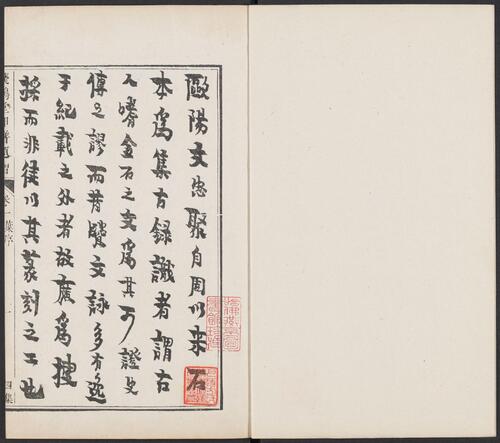 歐陽文忠聚自周以來石
本為集古錄識者謂古
人嗜金石之文為其可證史
傳之謬而昔賢文詠多有逸
于紀載之外者故廣為搜
採而非徒以其篆刻之工也
卷一葉序
一
四集